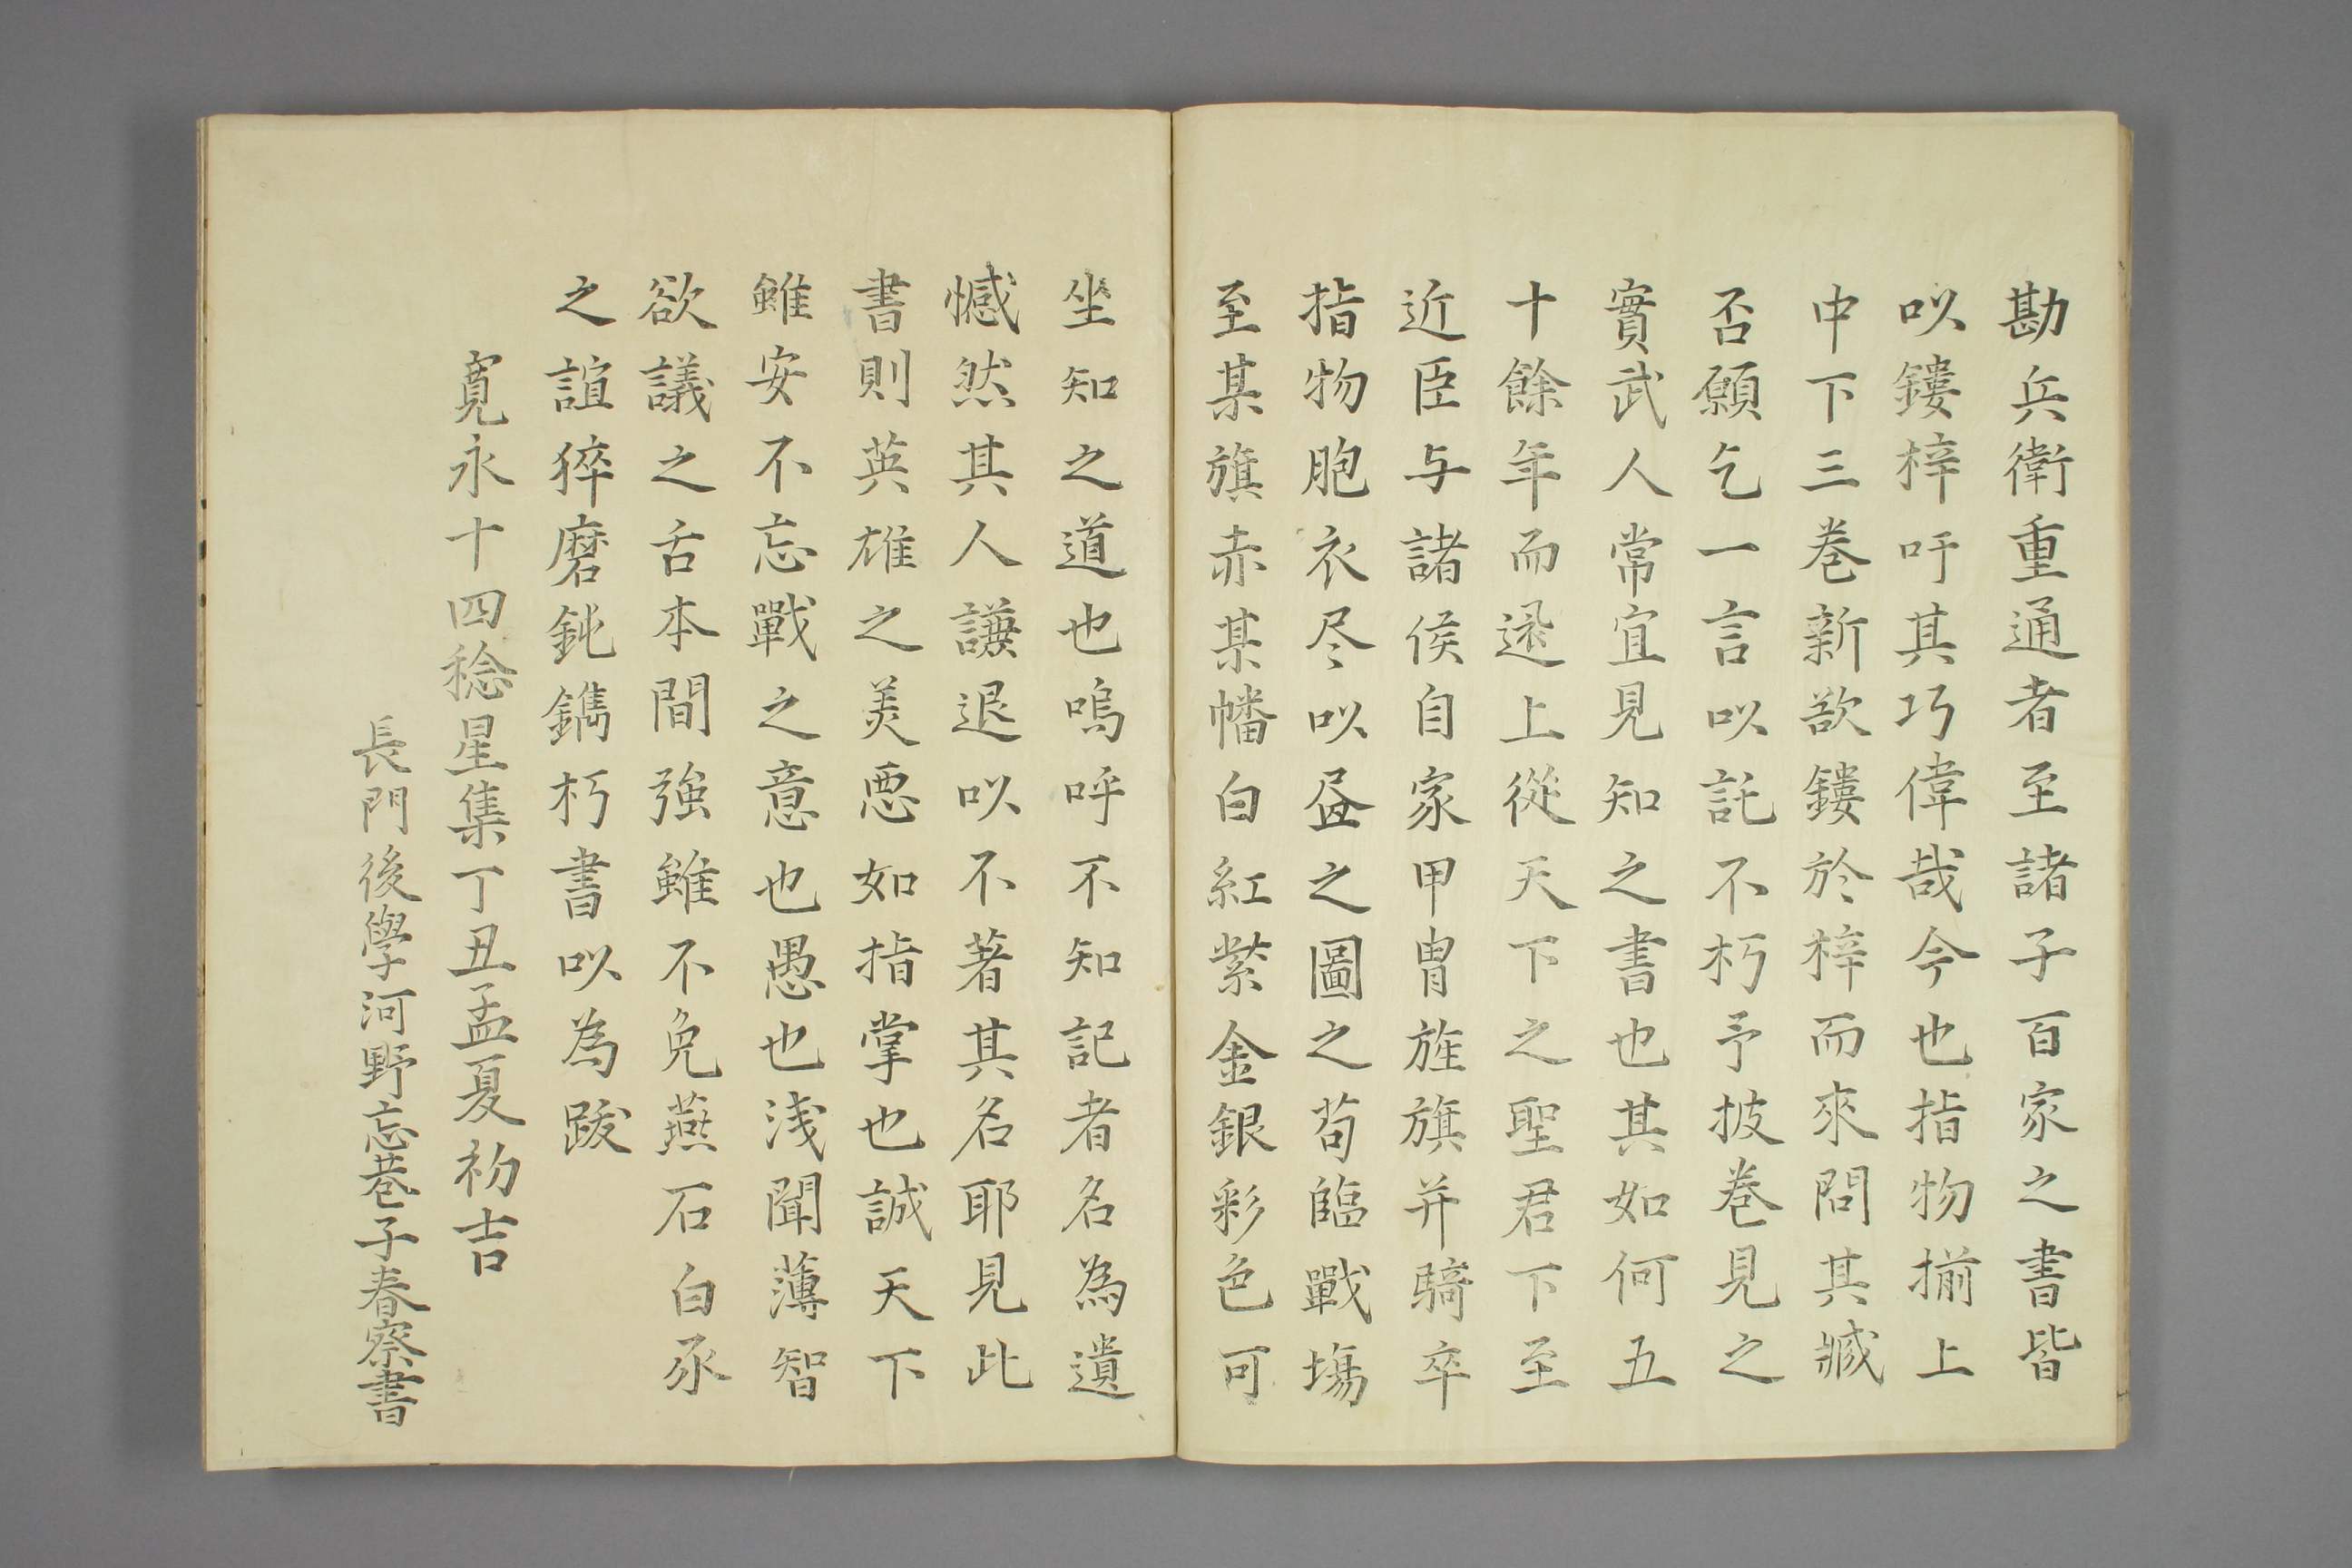 勘兵衛重通者至諸子百家之書皆
以鏤梓吁其巧偉哉今也指物揃上
中下三巻新欲鏤於梓而來問其臧
否願乞一言以託不朽予披巻見之
實武人常宜見知之書也其如何五
十餘年而還上從天下之聖君下至
近臣与諸侯自家甲冑旌旗并騎卒
指物胞衣尽以畫之圖之苟臨戰場
至某旗赤某幡白紅紫金銀彩色可
坐知之道也嗚呼不知記者名為遺
憾然其人謙退以不著其名耶見此
書則英雄之美悪如指掌也誠天下
雖安不忘戰之意也愚也浅聞薄智
欲議之舌本間強雖不免燕石白豕
之誼猝磨鈍鐫朽書以為跋
寛永十四稔星集丁丑孟夏初吉
長門後學河野忘巷子春察書